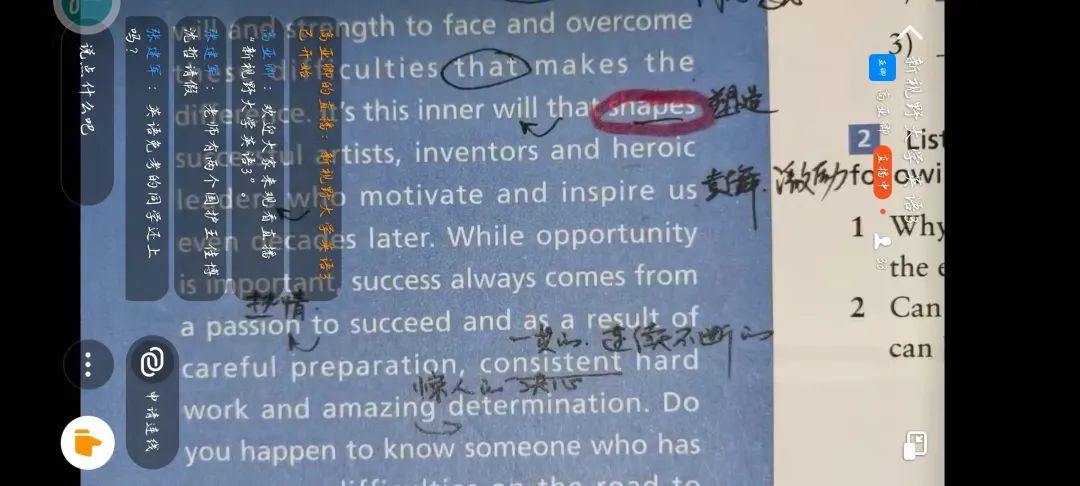 will and strength to face and overcome
these difficulties that makes the
difference. It's this inner will that shapes
塑造
successful artists, inventors and heroic
leaders who motivate and inspire us
激励
even decades later. While opportunity
is important, success always comes from
热情
a passion to succeed and as a result of
一贯的. 连续不断的
careful preparation, consistent hard
惊人的 决心
work and amazing determination. Do
you happen to know someone who has
difficulties on the road to
3)
2 List
followi
1 Why
the e
2 Can
can
新视野大学英语3
亚卿
高亚卿
直播中
38
高亚卿的直播：新视野大学英语3
已开始
高亚卿：欢迎大家来观看直播
“新视野大学英语3”。
张建军：老师有两个国护王佳博
沈哲请假
张建军：英语免考的同学还上
吗？
说点什么吧
申请连线